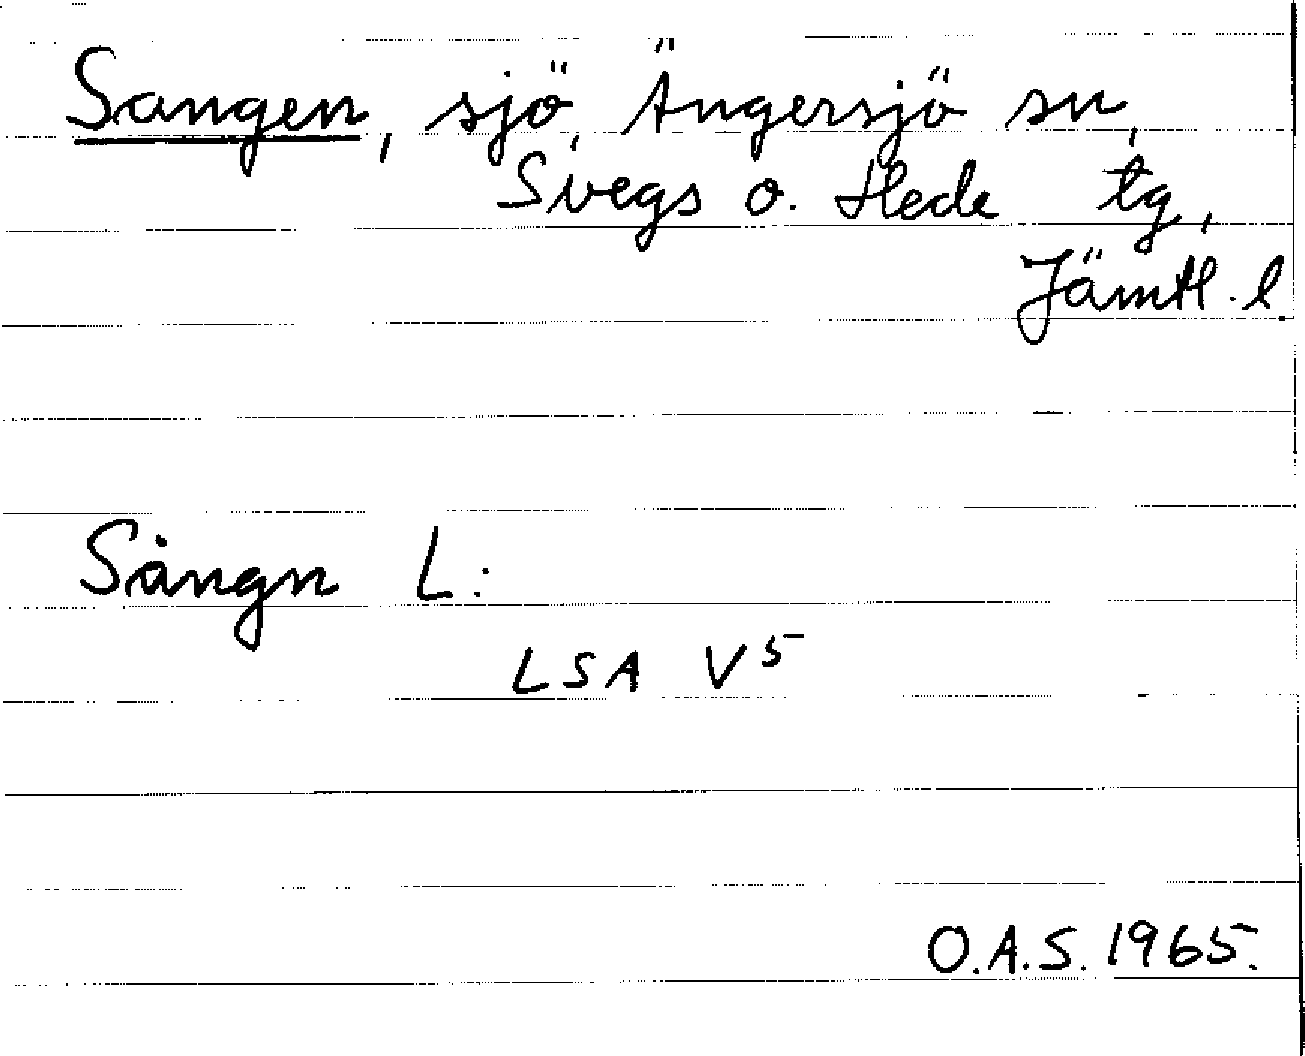 Sangen, sjö, Ängersjö sn,
Svegs o. Hede tg,
Jämtl. l.
Sångn L:
LSA V5
O.A.S. 1965.